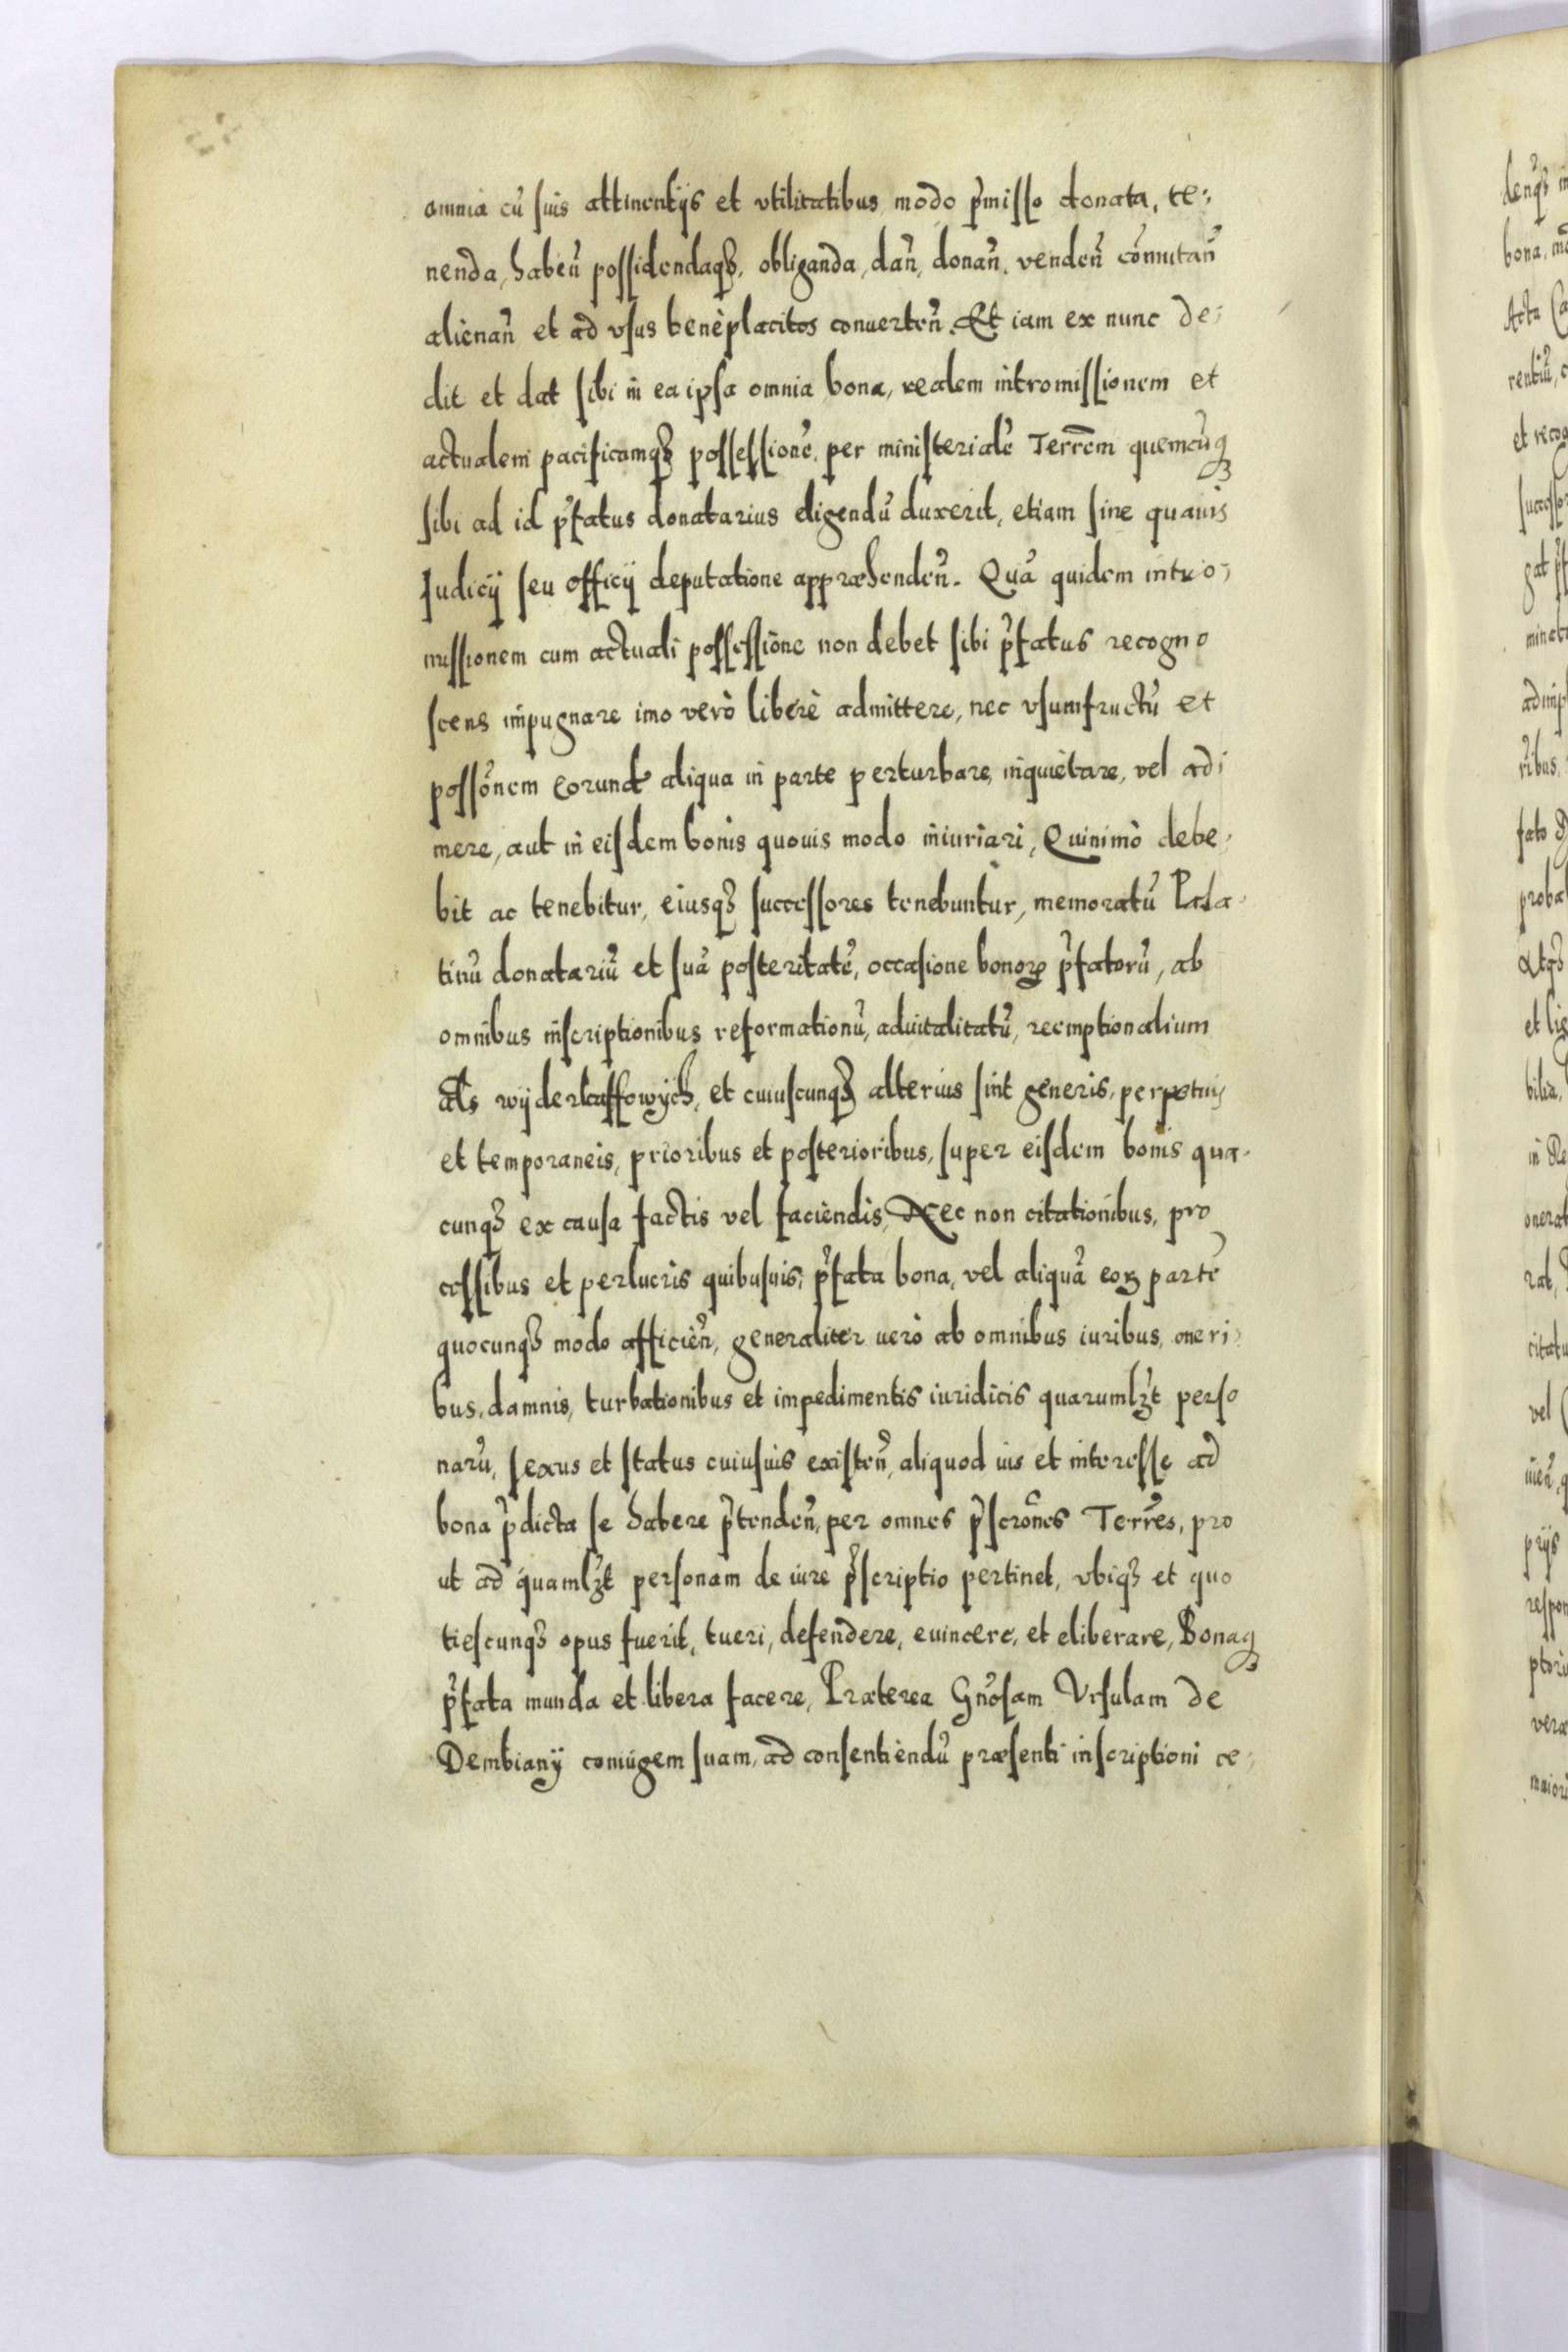 omnia cū suis attinentijs et vtilitatibus modo p̄misso donata, te-
nenda, habeñ possidendaqȝ, obliganda, dañ, donañ, vendeñ com̄utañ
alienañ et ad vsus beneplacitos conuerteñ. Et iam ex nunc de-
dit et dat sibi in ea ipsa omnia bona, realem intromissionem et
actualem pacificamqȝ possessionē, per ministerialē Terrēm quemcūqȝ
sibi ad id p̄fatus donatarius eligendū duxerit, etiam sine quauis
Iudicij seu officij deputatione appræhendeñ. Quā quidem intro-
missionem cum actuali possessione non debet sibi p̄fatus recogno
scens impugnare imo verò liberè admittere, nec vsumfructū et
possōnem eorund aliqua in parte perturbare, inquietare, vel adi
mere, aut in eisdem bonis quouis modo iniuriari, Quinimò debe-
bit ac tenebitur, eiusqȝ successores tenebuntur, memoratū Pala-
tinū donatariū et suā posteritatē, occasione bonoꝝ p̄fatorū, ab
omnibus inscriptionibus reformationū, aduitalitatū, reemptionalium
als wyderkaffowych, et cuiuscunqȝ alterius sint generis, perpetuis
et temporaneis, prioribus et posterioribus, super eisdem bonis qua-
cunqȝ ex causa factis vel faciendis, Nec non citationibus, pro
cessibus et perlucris quibusuis, p̄fata bona, vel aliquā eoꝝ partē
quocunqȝ modo afficieñ, generaliter uerò ab omnibus iuribus, oneri-
bus, damnis, turbationibus et impedimentis iuridicis quarumlȝt perso
narū, sexus et status cuiusuis existeñ, aliquod ius et interesse ad
bona p̄dicta se habere p̄tendeñ, per omnes p̄scrōnes Terrēs, pro
ut ad quamlȝt personam de iure p̄scriptio pertinet, vbiqȝ et quo
tiescunqȝ opus fuerit, tueri, defendere, euincere, et eliberare, Bonaqȝ
p̄fata munda et libera facere, Præterea Gn̄osam Vrsulam de
Dembiany coniugem suam, ad consentiendū præsenti inscriptioni ce-